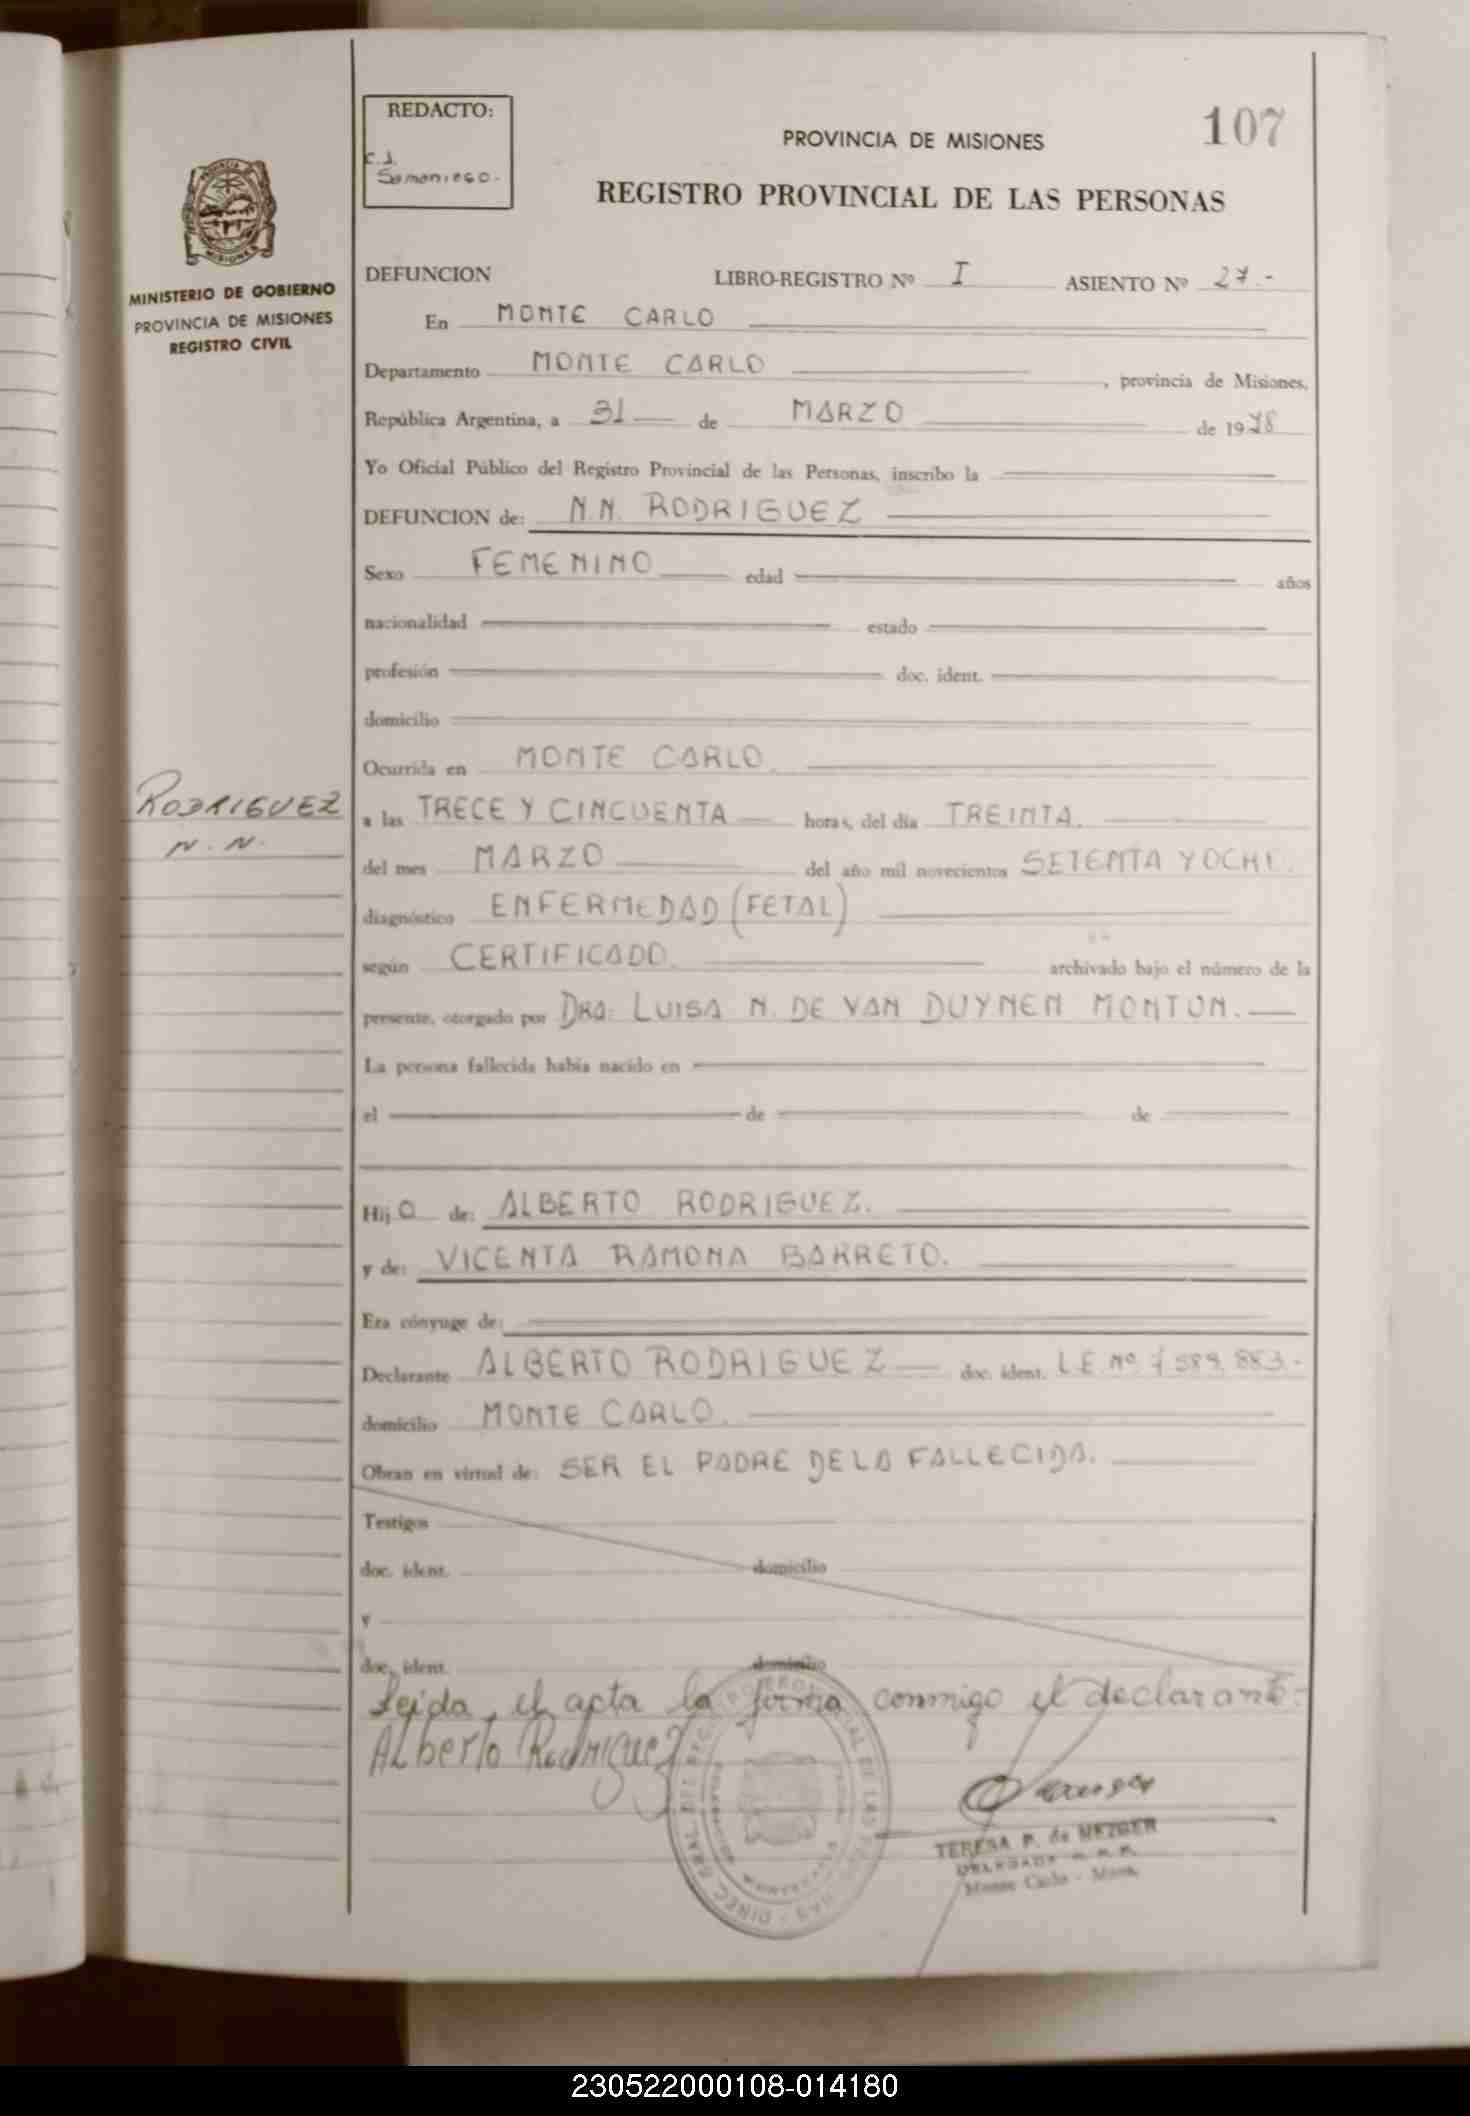 107
REDACTO:
C.J.
Samaniego.-
PROVINCIA DE MISIONES
REGISTRO PROVINCIAL DE LAS PERSONAS
MINISTERIO DE GOBIERNO
PROVINCIA DE MISIONES
REGISTRO CIVIL
DEFUNCION LIBRO-REGISTRO Nº I ASIENTO Nº 27.-
En MONTE CARLO
Departamento MONTE CARLO, provincia de Misiones,
República Argentina, a 31 de MARZO de 1978
Yo Oficial Público del Registro Provincial de las Personas, inscribo la
DEFUNCION de: N.N. RODRIGUEZ
Sexo FEMENINO edad años
nacionalidad estado
profesión doc. ident.
domicilio
Ocurrida en MONTE CARLO.
RODRIGUEZ
N.N.
a las TRECE Y CINCUENTA horas, del día TREINTA.
del mes MARZO del año mil novecientos SETENTA Y OCHO.
diagnóstico ENFERMEDAD (FETAL)
según CERTIFICADO. archivado bajo el número de la
presente, otorgado por DRA: LUISA N. DE VAN DUYNEN MONTUN.
La persona fallecida había nacido en
el de de
Hijo de: ALBERTO RODRIGUEZ.
y de: VICENTA RAMONA BARRETO.
Era cónyuge de:
Declarante ALBERTO RODRIGUEZ doc. ident. L.E. Nº 7.589.883.-
domicilio MONTE CARLO.
Obran en virtud de: SER EL PADRE DE LA FALLECIDA.
Testigos
doc. ident. domicilio
y
doc. ident. domicilio
Leida el acta la firma conmigo el declarante.-
Alberto Rodriguez
TERESA P. de MEZGER
DELEGADA R. P. P.
Monte Carlo - Mnes.
230522000108-014180